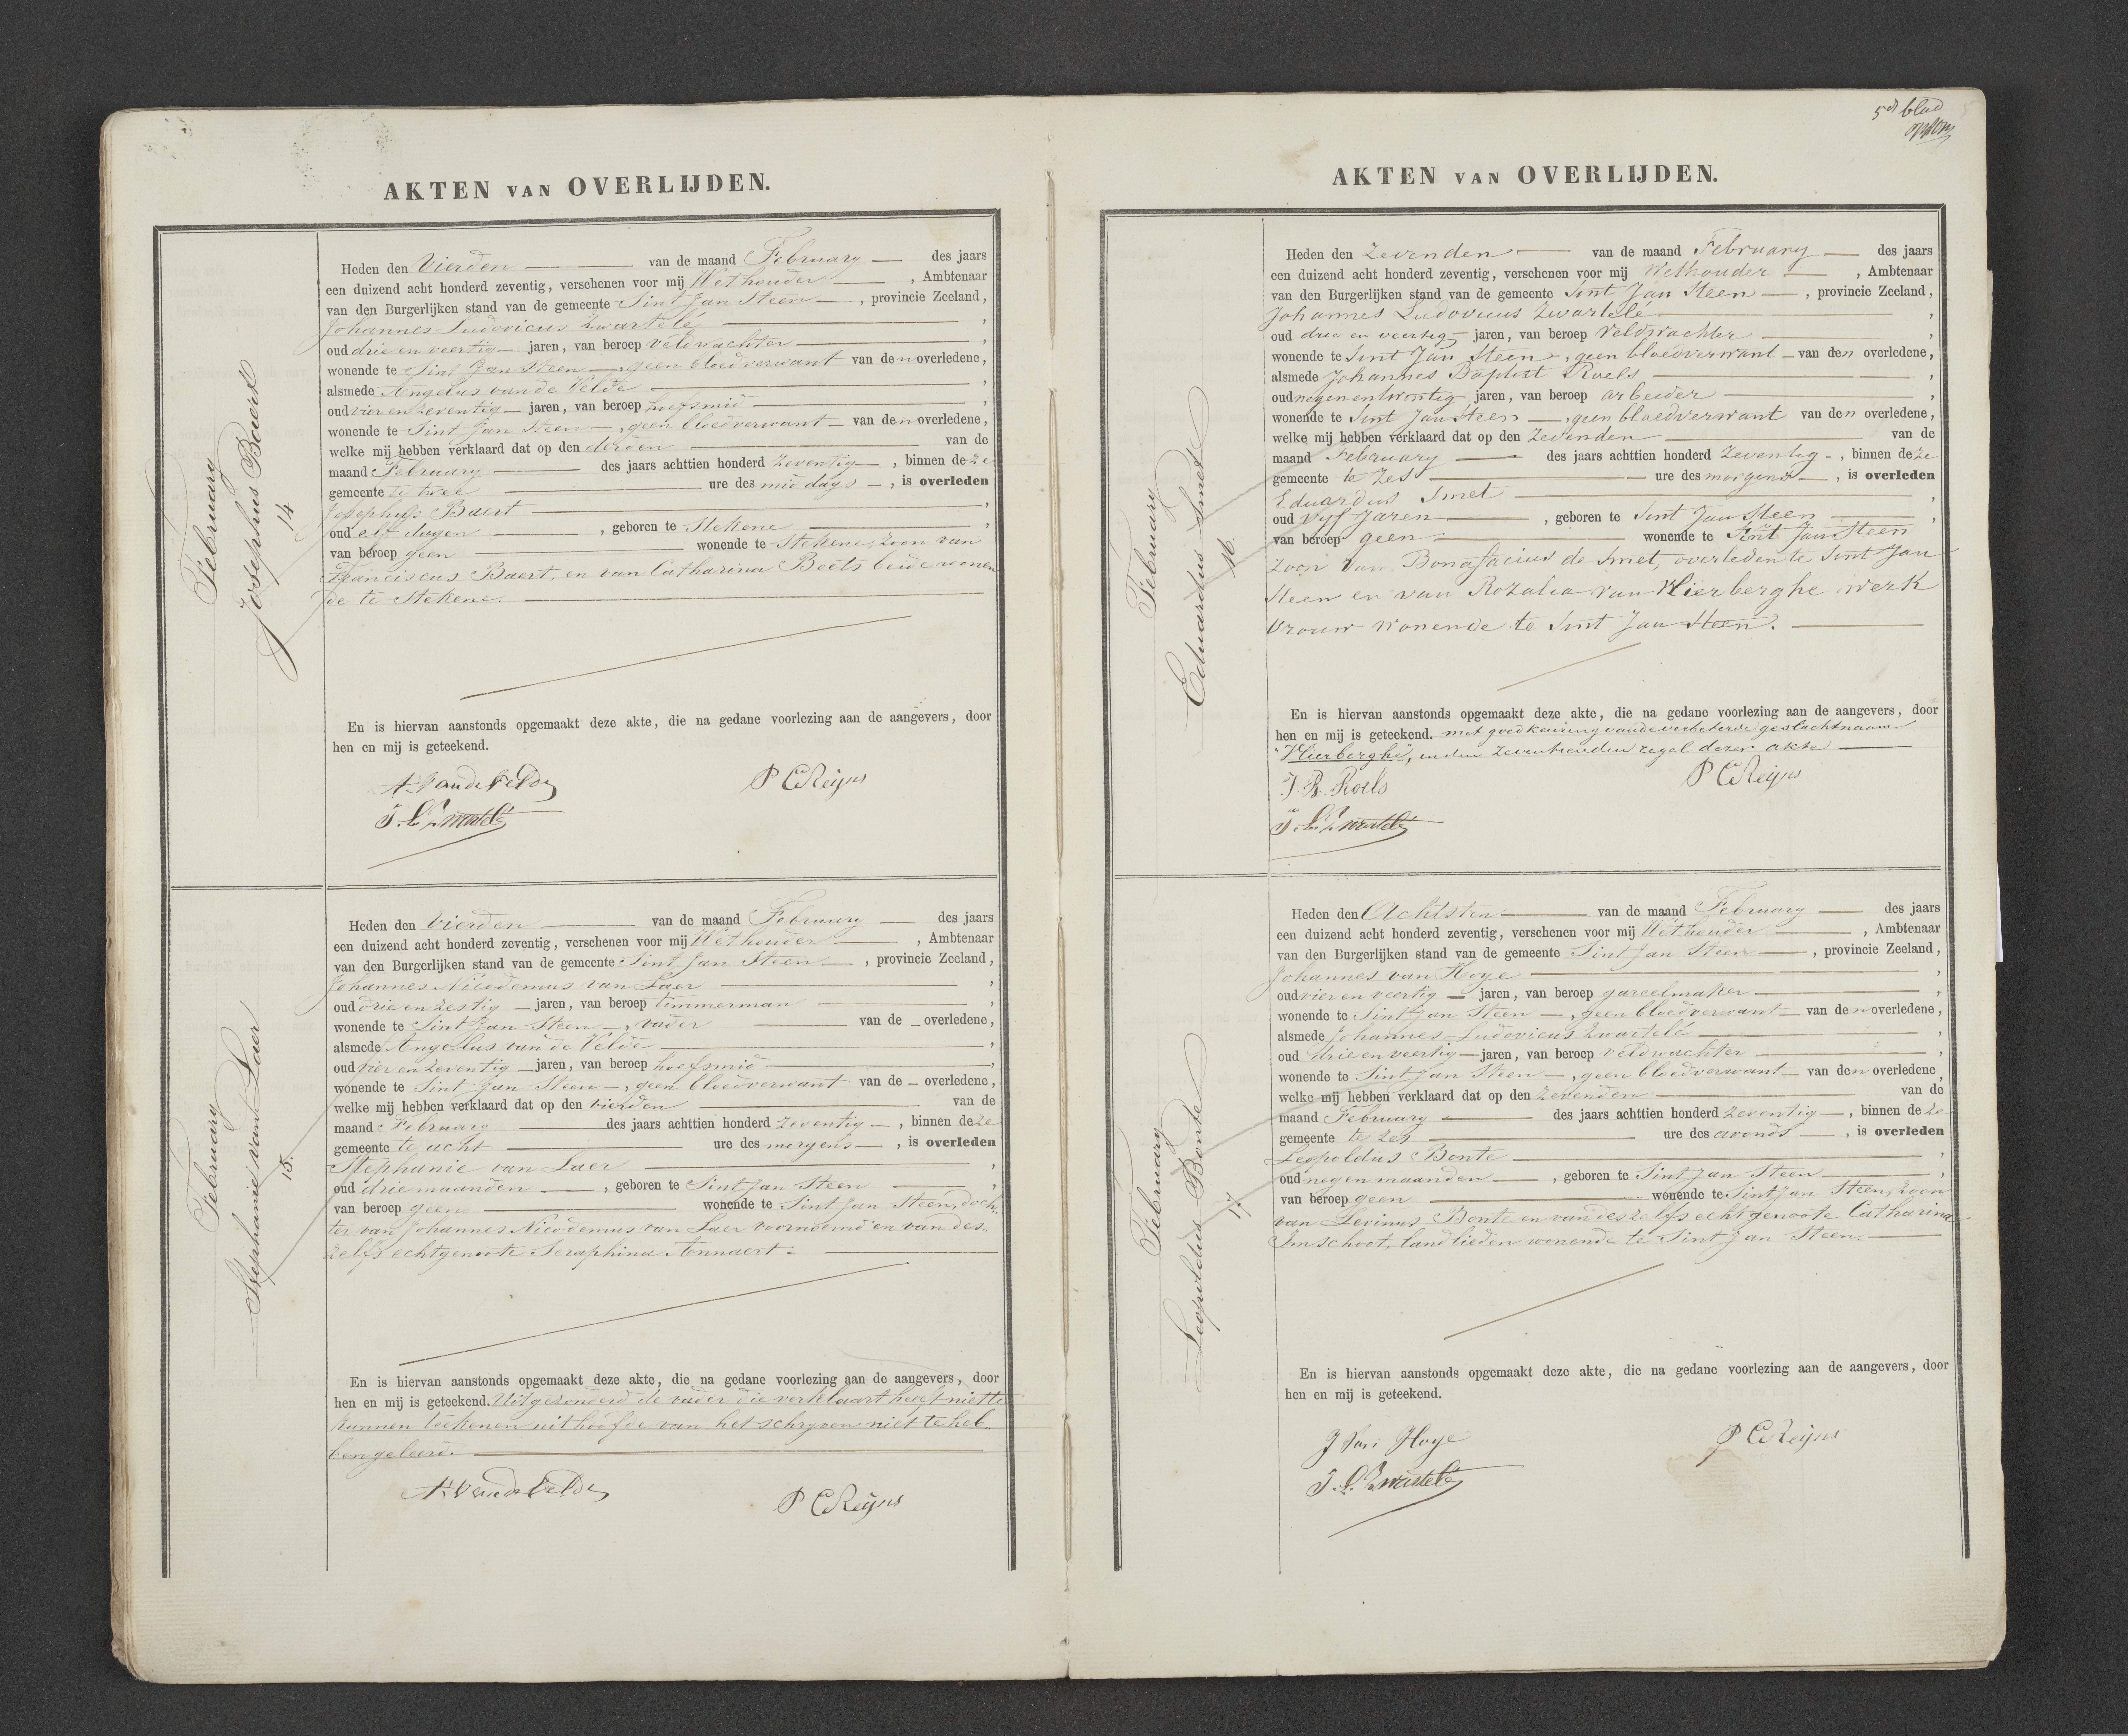 AKTEN VAN OVERLIJDEN.
February
Josephus Baert
14
Heden den Vierden van de maand February des jaars
een duizend acht honderd zeventig, verschenen voor mij Wethouder, Ambtenaar
van den Burgerlijken stand van de gemeente Sint Jan Steen, provincie Zeeland,
Johannes Ludovicus Zwartelé,
oud drie en veertig jaren, van beroep veldwachter,
wonende te Sint Jan Steen, geen bloedverwant van den overledene,
alsmede Angelus van de Velde,
oud vier en zeventig jaren, van beroep hoefsmid,
wonende te Sint Jan Steen, geen bloedverwant van den overledene,
welke mij hebben verklaard dat op den derden van de
maand February des jaars achttien honderd zeventig, binnen deze
gemeente te twee ure des middags, is overleden
Josephus Baert,
oud elf dagen, geboren te Stekene,
van beroep geen wonende te Stekene, zoon van
Franciscus Baert, en van Catharina Beets beide wonen
de te Stekene.
En is hiervan aanstonds opgemaakt deze akte, die na gedane voorlezing aan de aangevers, door
hen en mij is geteekend.
A. Van de Velde P C Reijns
J. L. Zwartelé
February
Stephanie van Laer
15.
Heden den vierden van de maand February des jaars
een duizend acht honderd zeventig, verschenen voor mij Wethouder, Ambtenaar
van den Burgerlijken stand van de gemeente Sint Jan Steen, provincie Zeeland,
Johannes Nicodemus van Laer,
oud drie en zestig jaren, van beroep timmerman,
wonende te Sint Jan Steen, vader van de overledene,
alsmede Angelus van de Velde,
oud vier en zeventig jaren, van beroep hoefsmid,
wonende te Sint Jan Steen, geen bloedverwant van de overledene,
welke mij hebben verklaard dat op den vierden van de
maand February des jaars achttien honderd zeventig, binnen deze
gemeente te acht ure des morgens, is overleden
Stephanie van Laer,
oud drie maanden, geboren te Sint Jan Steen,
van beroep geen wonende te Sint Jan Steen, doch-
ter van Johannes Nicodemus van Laer voornoemd en van des-
zelfs echtgenoote Seraphina Annaert.
En is hiervan aanstonds opgemaakt deze akte, die na gedane voorlezing aan de aangevers, door
hen en mij is geteekend. Uitgezonderd de vader die verklaart heeft niet te
kunnen teekenen uit hoofde van het schryven niet te heb-
ben geleerd.
A. Van de Velde P C Reijns
5de blad
AKTEN VAN OVERLIJDEN.
February
Eduardus Smet
16.
Heden den Zevenden van de maand February des jaars
een duizend acht honderd zeventig, verschenen voor mij Wethouder, Ambtenaar
van den Burgerlijken stand van de gemeente Sint Jan Steen, provincie Zeeland,
Johannes Ludovicus Zwartelé,
oud drie en veertig jaren, van beroep Veldwachter,
wonende te Sint Jan Steen, geen bloedverwant van den overledene,
alsmede Johannes Baptist Roels,
oud negenentwintig jaren, van beroep arbeider,
wonende te Sint Jan Steen, geen bloedverwant van den overledene,
welke mij hebben verklaard dat op den Zevenden van de
maand February des jaars achttien honderd Zeventig, binnen deze
gemeente te Zes ure des morgens, is overleden
Eduardus Smet,
oud Vyf Jaren, geboren te Sint Jan Steen,
van beroep geen wonende te Sint Jan Steen
Zoon van Bonafacius de Smet, overleden te Sint Jan
Steen en van Rozalia van Hierberghe werk
vrouw wonende te Sint Jan Steen.
En is hiervan aanstonds opgemaakt deze akte, die na gedane voorlezing aan de aangevers, door
hen en mij is geteekend. met goedkeuring van de verbeterde geslachtnaam
"Hierberghe", in den zeventienden regel dezer akte
J. B. Roels P C Reijns
J. L. Zwartelé
February
Leopoldus Bonte
17
Heden den Achtsten van de maand February des jaars
een duizend acht honderd zeventig, verschenen voor mij Wethouder, Ambtenaar
van den Burgerlijken stand van de gemeente Sint Jan Steen, provincie Zeeland,
Johannes van Hoye,
oud vier en veertig jaren, van beroep gareelmaker,
wonende te Sint Jan Steen, geen bloedverwant van den overledene,
alsmede Johannes Ludovicus Zwartelé,
oud drie en veertig jaren, van beroep veldwachter,
wonende te Sint Jan Steen, geen bloedverwant van den overledene,
welke mij hebben verklaard dat op den Zevenden van de
maand February des jaars achttien honderd zeventig, binnen deze
gemeente te zes ure des avonds, is overleden
Leopoldus Bonte,
oud negen maanden, geboren te Sint Jan Steen,
van beroep geen wonende te Sint Jan Steen, zoon
van Levinus Bonte en van deszelfs echtgenoote Catharina
Imschoot, landlieden wonende te Sint Jan Steen.
En is hiervan aanstonds opgemaakt deze akte, die na gedane voorlezing aan de aangevers, door
hen en mij is geteekend.
J Van Hoye P C Reijns
J. L. Zwartelé